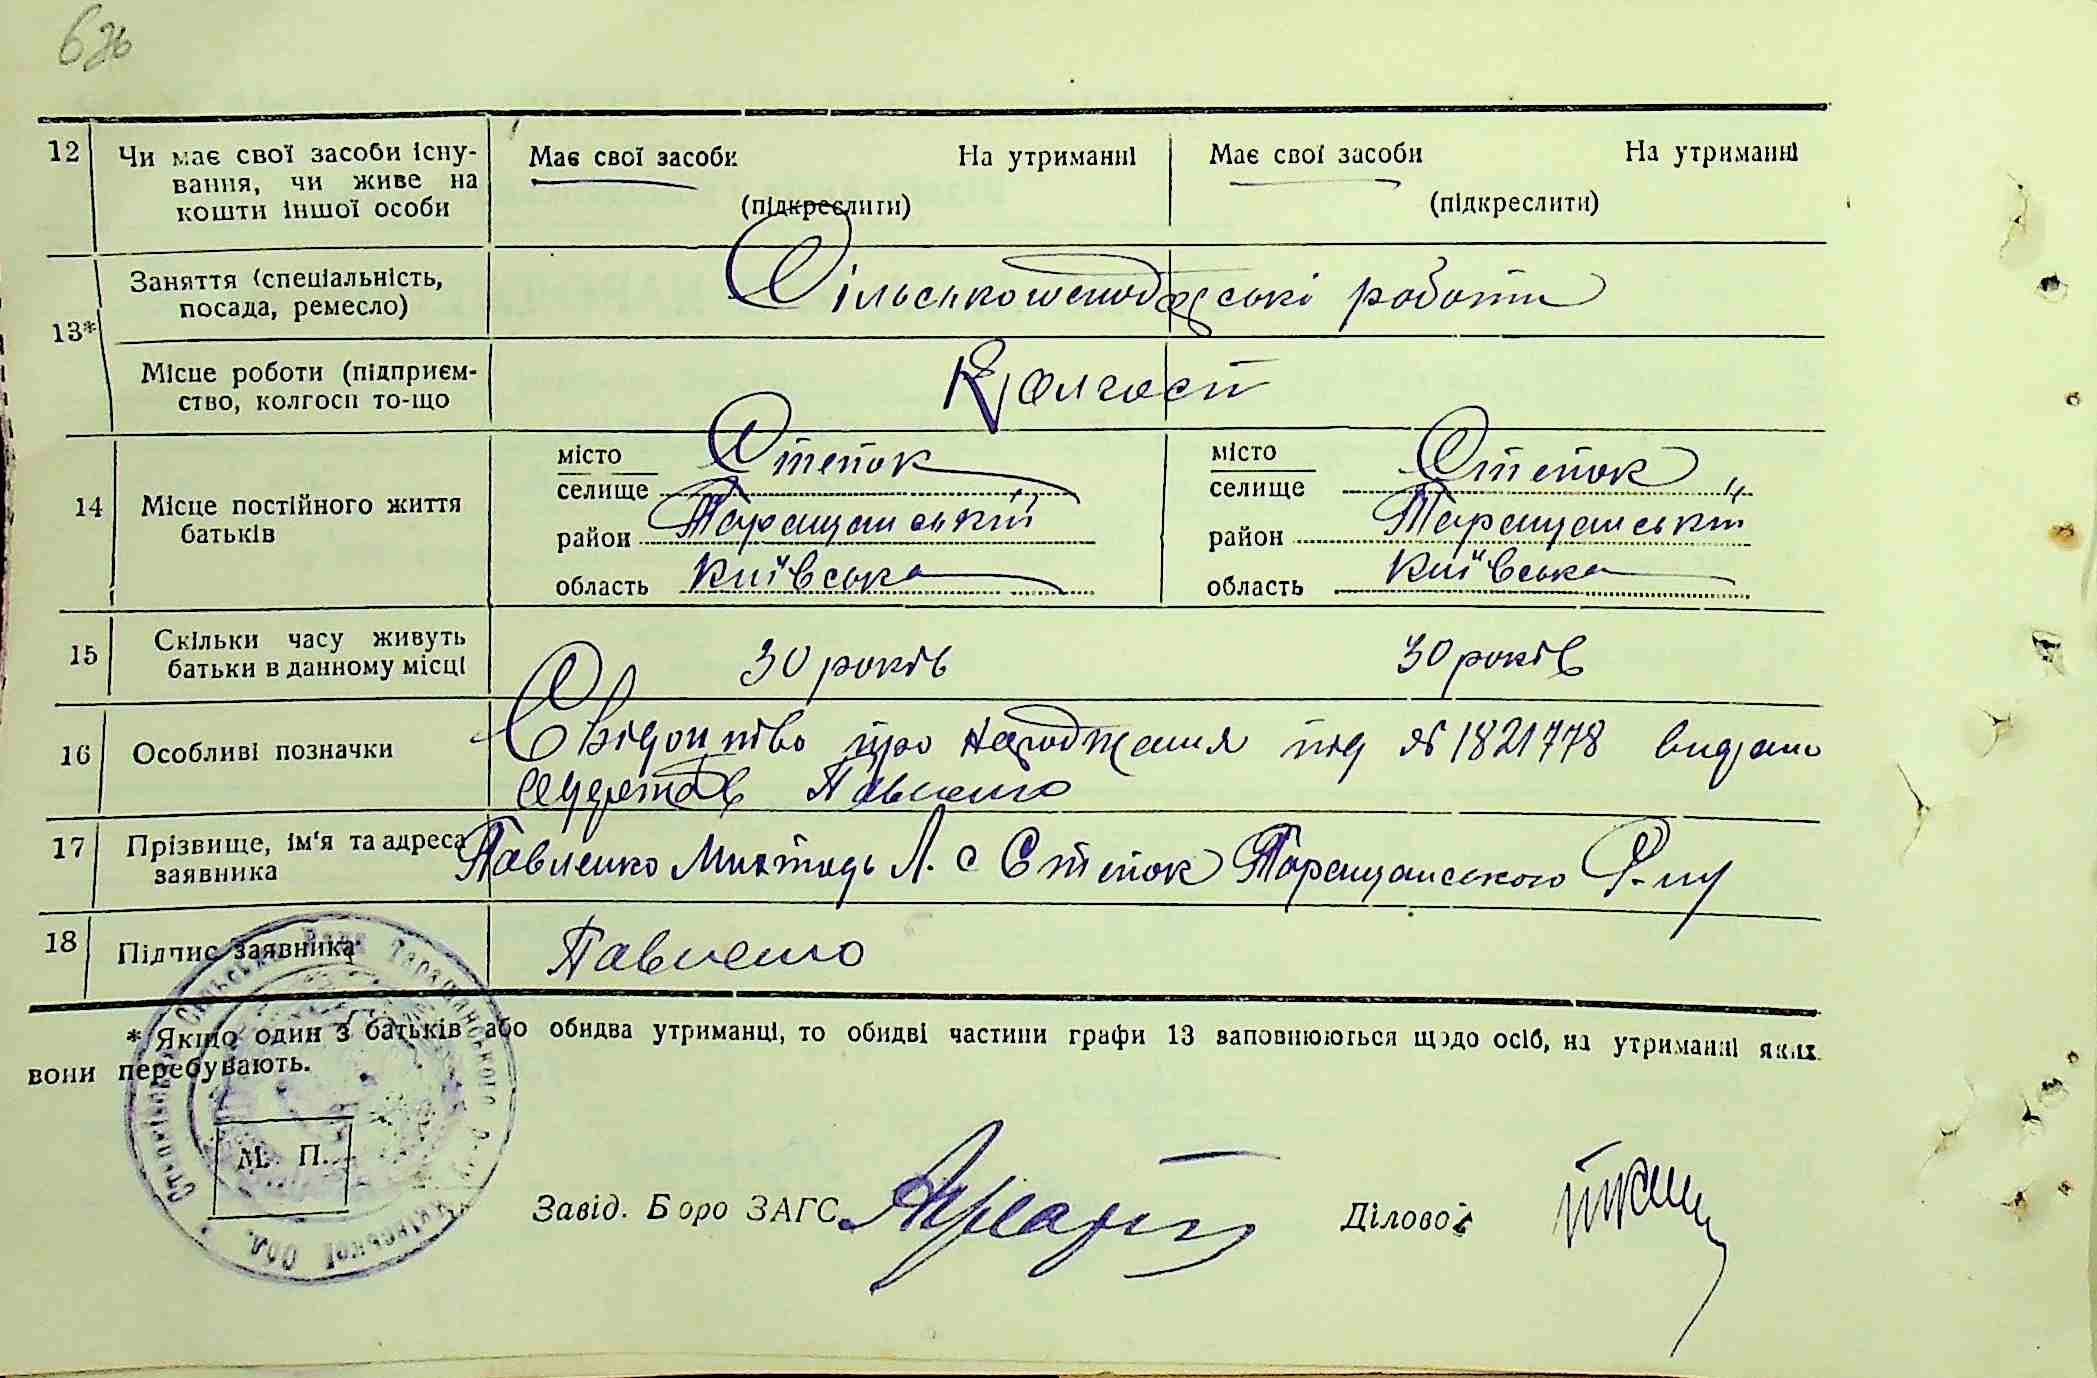 6зв
12 Чи має свої засоби існу-
вання, чи живе на
кошти іншої особи
Має свої засоби На утриманні Має свої засоби На утриманні
(підкреслити) (підкреслити)
13* Заняття (спеціальність,
посада, ремесло)
Сільськогосподарські роботи
Місце роботи (підприєм-
ство, колгосп то-що
Колгосп
14 Місце постійного життя
батьків
місто Степок місто Степок
селище селище
район Таращанський район Таращанський
область Київська область Київська
15 Скільки часу живуть
батьки в данному місці
30 років 30 років
16 Особливі позначки
Свідоцтво про народження під № 1821778 видано
Павленко
17 Прізвище, ім'я та адреса
заявника
Павленко Л. с Степок Таращанського Р-ну
18 Підпис заявника
Павленко
* Якщо один з батьків або обидва утриманці, то обидві частини графи 13 заповнюються щодо осіб, на утриманні яких
вони перебувають.
М. П.
Завід. Бюро ЗАГС Діловод
Сільська Рада Таращанського Р-ну Київської Обл.